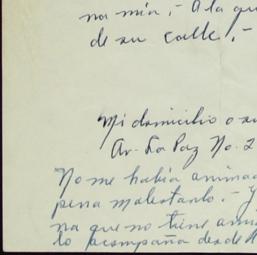 na mia,- A la qu
de su calle.-
Mi domicilio o su
Av. La Paz No. 2
No me había animad
pena molestarlo.- Y
na que no tiene ami
lo acompaña desde A